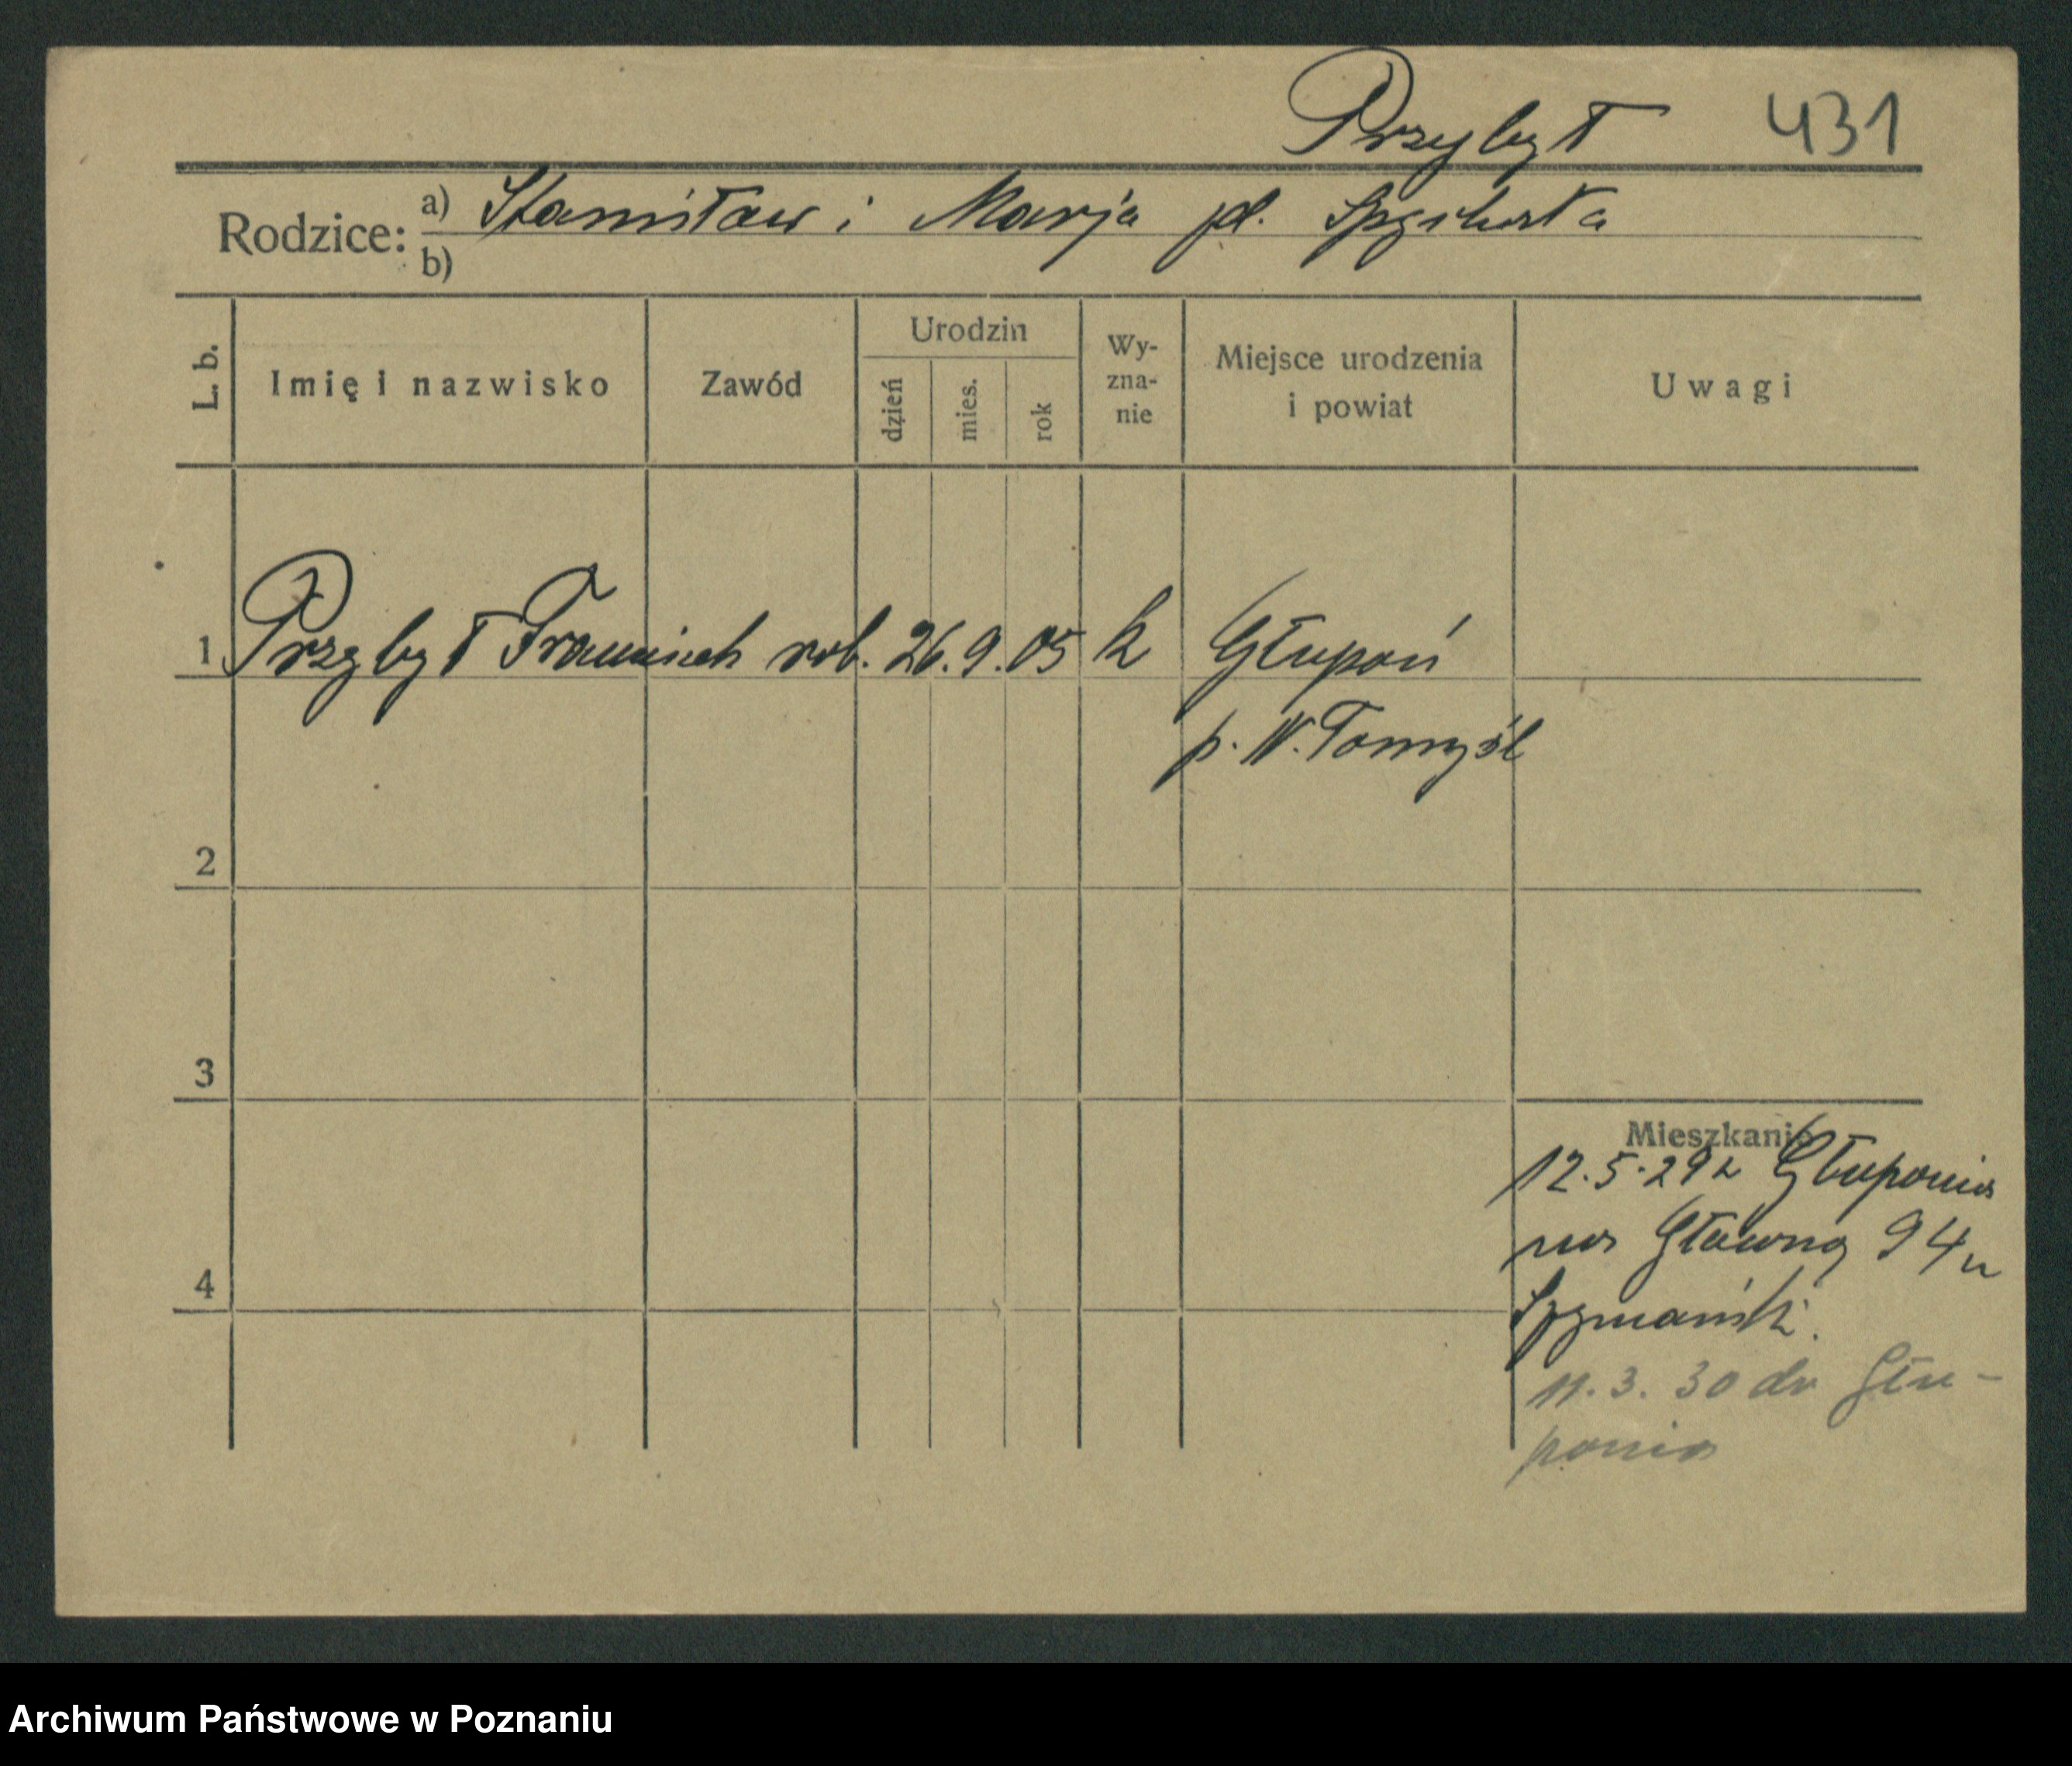 Przybył 431
Rodzice: a) Stanisław i Marja
b)
L. b.
Imię i nazwisko
Zawód
Urodzin
dzień
mies.
rok
Wy-
zna-
nie
Miejsce urodzenia
i powiat
Uwagi
1 Przybył Franciszek rob. 26. 9. 05 k Głupoń
p. N. Tomyśl
2
3
4
Mieszkanie
12.5.29 z Głuponia
na Główną 94 u
Szymański.
11.3.30 do Głu-
ponia
Archiwum Państwowe w Poznaniu